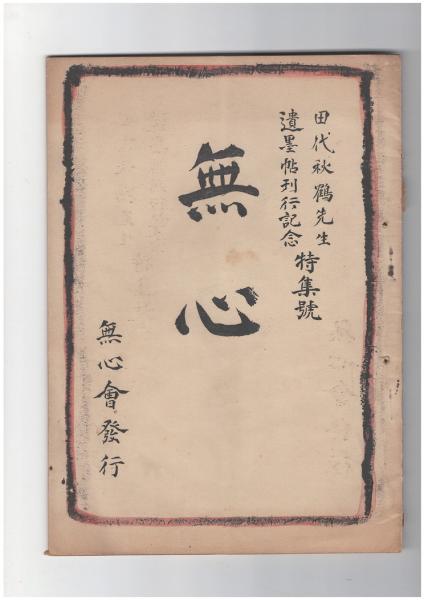 田代秋鶴先生
遺墨帖刊行記念
特集號
無心
無心會發行